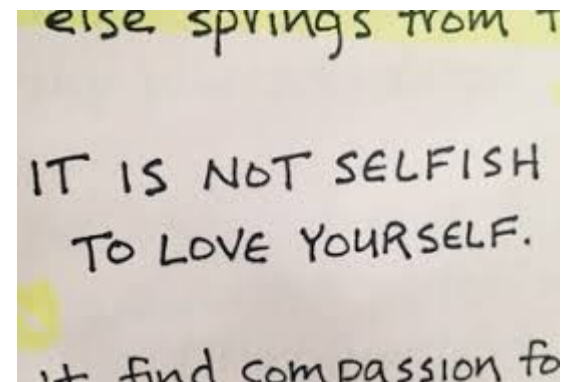 else springs from
IT IS NOT SELFISH
TO LOVE YOURSELF.
it find compassion fo